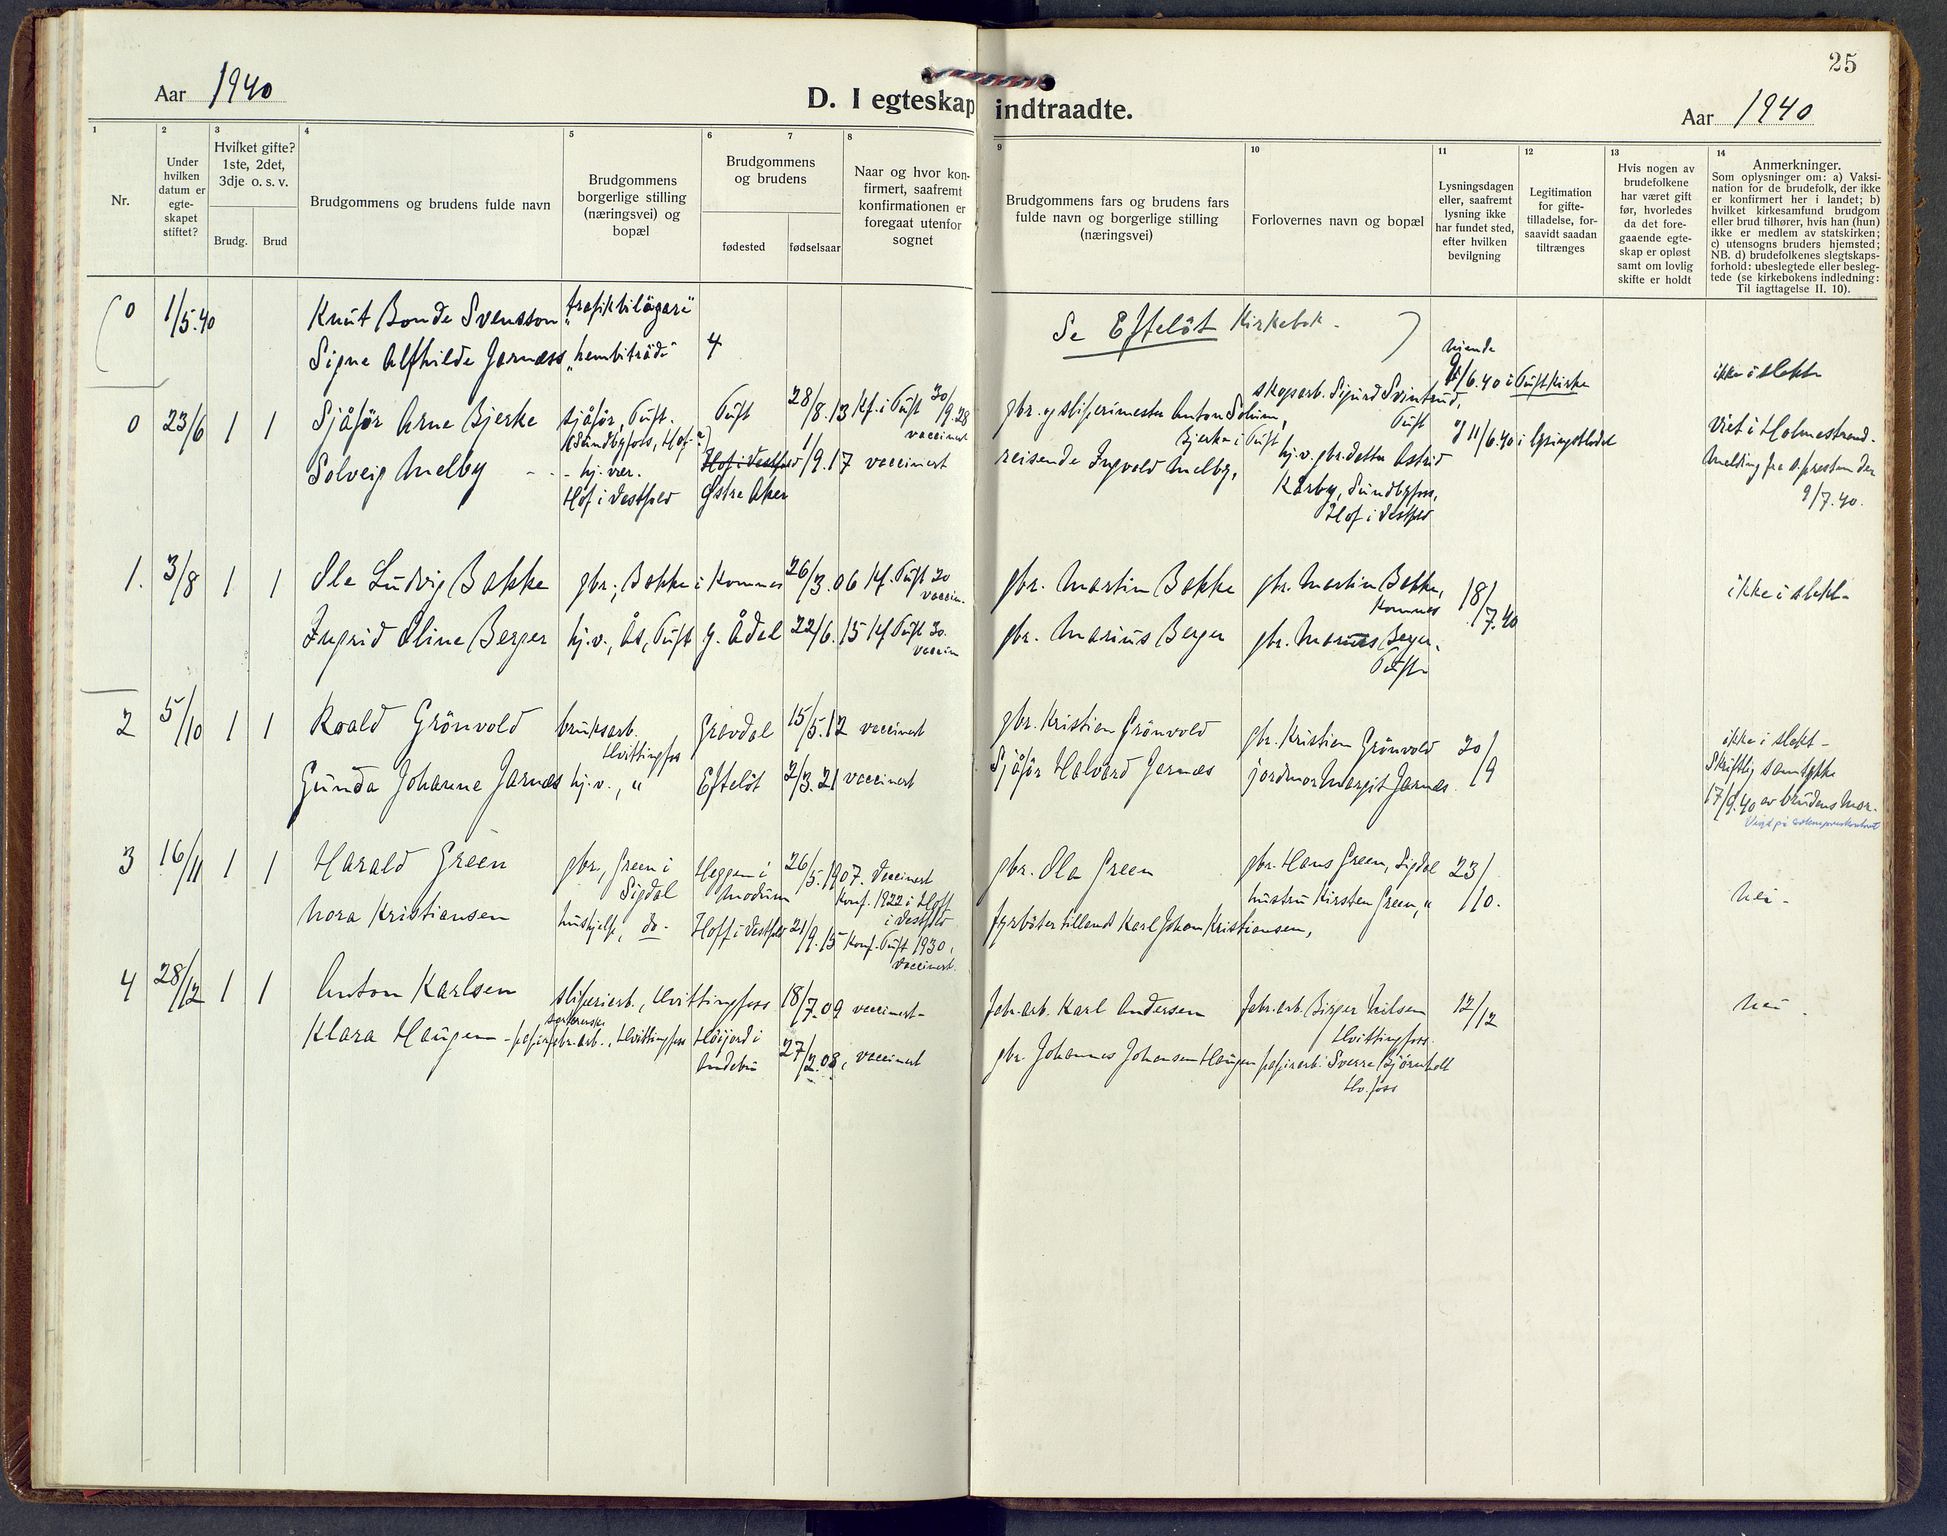 25
Aar 1940
D. I egteskap indtraadte.
Aar 1940
1
2
3
4
5
6
7
8
9
10
11
12
13
14
Nr.
Under
hvilken
datum er
egte-
skapet
stiftet?
Hvilket gifte?
1ste, 2det,
3dje o. s. v.
Brudg.
Brud
Brudgommens og brudens fulde navn
Brudgommens
borgerlige stilling
(næringsvei) og
bopæl
Brudgommens
og brudens
fødested
fødselsaar
Naar og hvor kon-
firmert, saafremt
konfirmationen er
foregaat utenfor
sognet
Brudgommens fars og brudens fars
fulde navn og borgerlige stilling
(næringsvei)
Forlovernes navn og bopæl
Lysningsdagen
eller, saafremt
lysning ikke
har fundet sted,
efter hvilken
bevilgning
Legitimation
for gifte-
tilladelse, for-
saavidt saadan
tiltrænges
Hvis nogen av
brudefolkene
har været gift
før, hvorledes
da det fore-
gaaende egte-
skap er opløst
samt om lovlig
skifte er holdt
Anmerkninger.
Som oplysninger om: a) Vaksi-
nation for de brudefolk, der ikke
er konfirmert her i landet; b)
hvilket kirkesamfund brudgom
eller brud tilhører, hvis han (hun)
ikke er medlem av statskirken;
c) utensogns bruders hjemsted;
NB. d) brudefolkenes slegtskaps-
forhold: ubeslegtede eller besleg-
tede (se kirkebokens indledning:
Til iagttagelse II. 10).
0 1/5.40 Knut Bonde Svensson "trafikbilägare" Se Efteløt Kirkebok.
Signe Alfhilde Jarnæss "hembiträde" 4
0 23/6 1 1 Sjåfør Arne Bjerke sjåfør, Tuft. Tuft 28/8.13 Kf. i Tuft 30/9.28
vaccinert
(Sundbyfoss, Hof)
gbr. og sliperimester Anton Solum,
Bjerke i Tuft
skogsarb. Sigurd Svintrud,
Tuft
9/6.40 i Tuft Kirke
ikke i slekt
Solveig Melby hj. vær.
Hof i Vestfold
Hof i Vestfold
Østre Aker
1/9.17 vaccinert
reisende Ingvald Melby,
hj.v. gbr.datter Astrid
Kårby, Sundbyfoss,
Hof i Vestfold
11/6.40 i lysningsbladet
Viet i Holmestrand.
Melding fra s.presten der
9/7.40.
1. 3/8 1 1 Ole Ludvig Bakke gbr., Bakke i Komnes 26/3.06 Kf. Tuft 20
vaccin.
gbr. Martin Bakke gbr. Martin Bakke,
Komnes
18/7.40
ikke i slekt
Ingrid Oline Berger hj.v., Ås, Tuft g. Ådal 22/6.15 Kf Tuft 30.
vaccin
gbr. Marius Berger gbr. Marius Berger.
Tuft
2 5/10 1 1 Roald Grönvold bruksarb.
Hvittingfoss
Gravdal 15/5.12 vaccinert gbr. Kristian Grönvold gbr. Kristian Grönvold 20/9
ikke i slekt
Gunda Johanne Jarnæs hj.v., " Efteløt 2/3.21 vaccinert Sjåfør Halvard Jarnæs jordmor Margit Jarnæs
Skriftlig samtykke
17/9.40 av brudens mor.
3 16/11 1 1 Harald Green gbr, Green i
Sigdal
Heggen i
Modum
26/5.1907. Vaccinert
Konf. 1922 i Hoff
i Vestfold
gbr. Ola Green gbr. Hans Green, Sigdal 23/10.
nei
Nora Kristiansen hushjelp, do. Hoff i Vestfold 21/9.15 Konf. Tuft 1930,
vaccinert.
fyrbøter tilland Karl Johan Kristiansen, hustru Kirsten Green, "
4 28/12 1 1 Anton Karlsen sliperiarb., Hvittingfoss 18/7.09 vaccinert fabr.arb. Karl Andersen fabr.arb. Birger Nilsen
Hvittingfoss.
12/12
nei
Klara Haugen papirfabr.arb., Hvittingfoss Høijord i
Andebu
27/2.08, vaccinert gbr. Johannes Johansen Haugen papirarb. Sverre Bjørnholt
Hv.foss